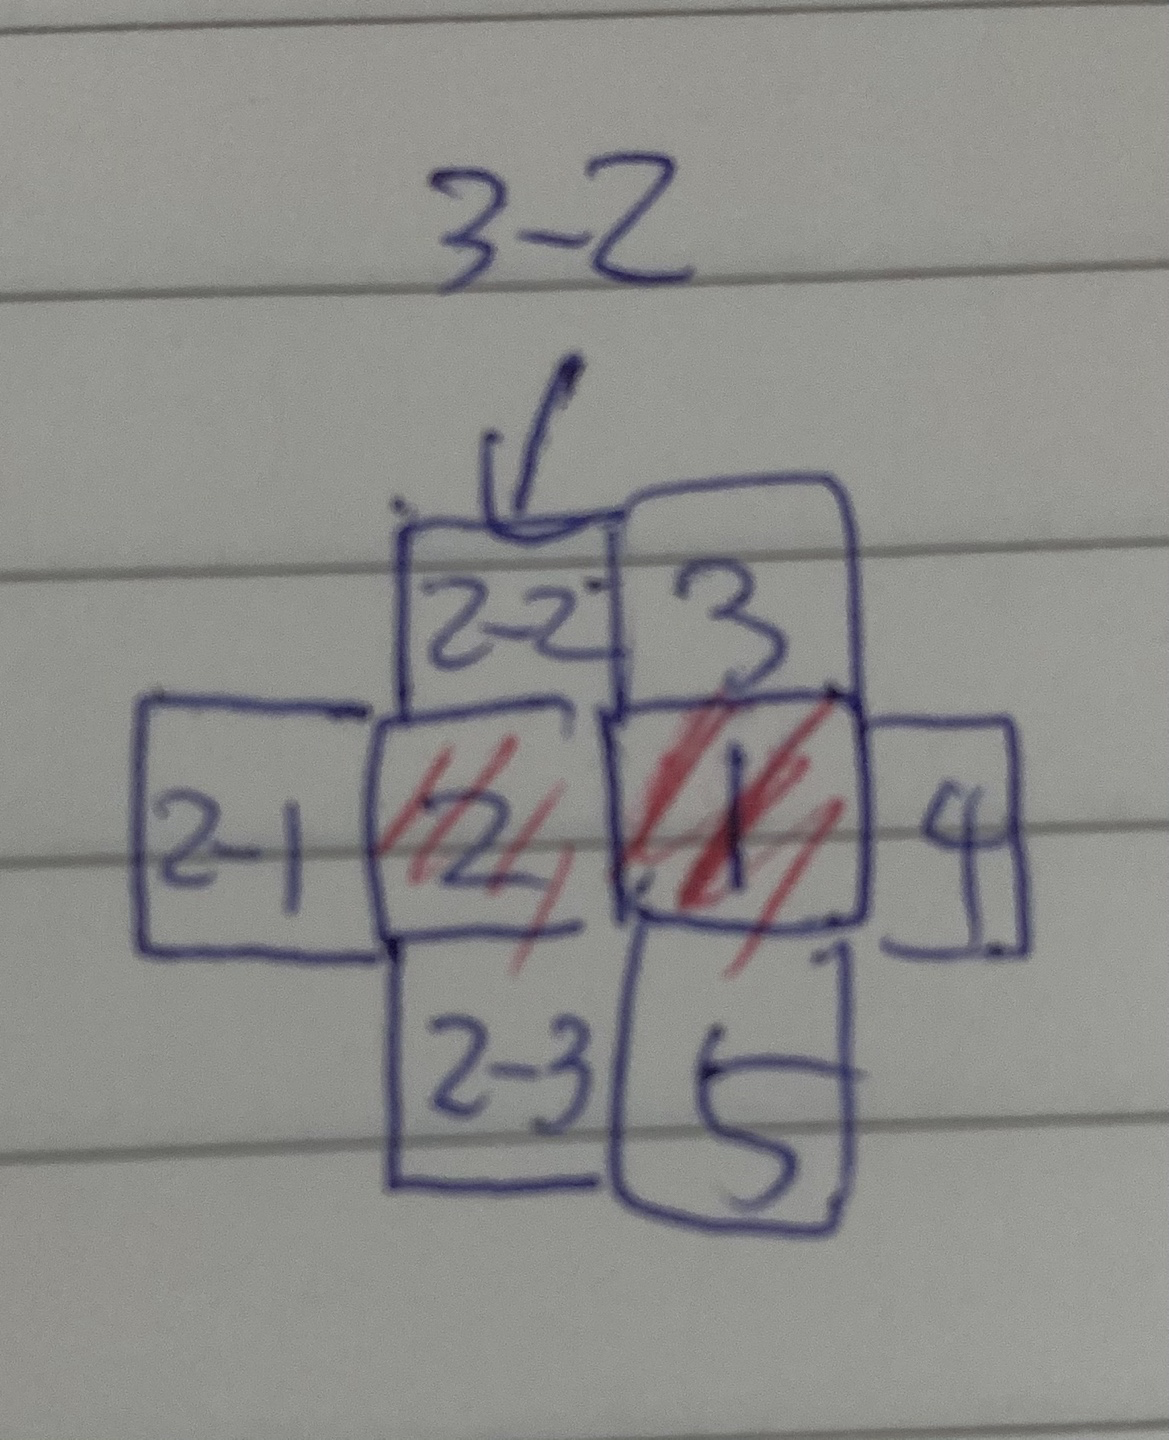 3-2
2-2 3
2-1 2 1 4
2-3 5